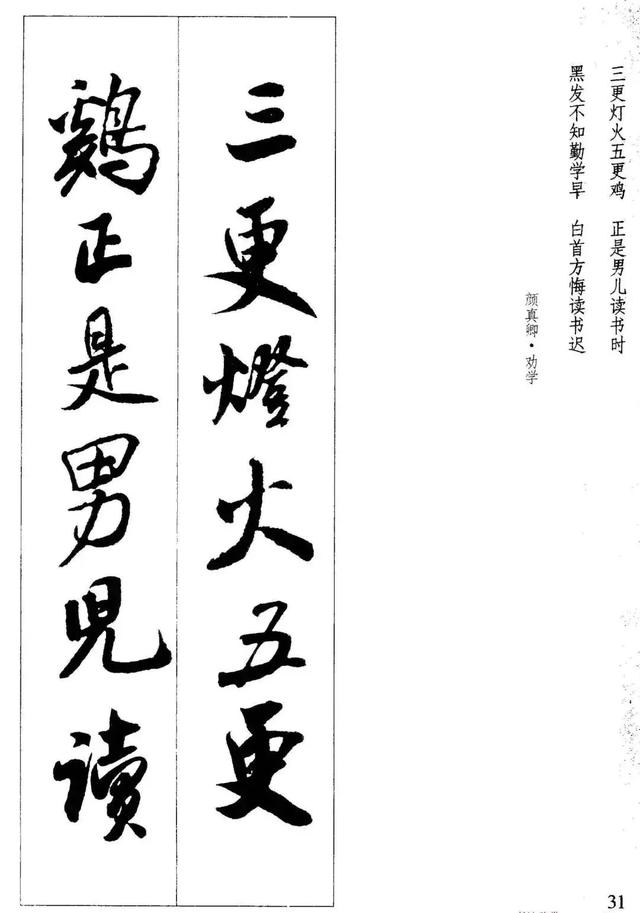 三更灯火五更鸡　正是男儿读书时
黑发不知勤学早　白首方悔读书迟
颜真卿·劝学
三更燈火五更
鷄正是男兒讀
31